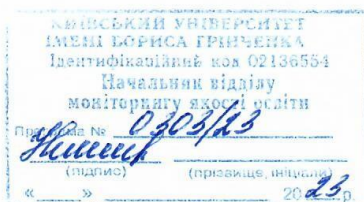 КИЇВСЬКИЙ УНІВЕРСИТЕТ
ІМЕНІ БОРИСА ГРІНЧЕНКА
Ідентифікаційний код 02136554
Начальник відділу
моніторингу якості освіти
Програма № 0303/23
(підпис) (прізвище, ініціали)
« » 2023 р.